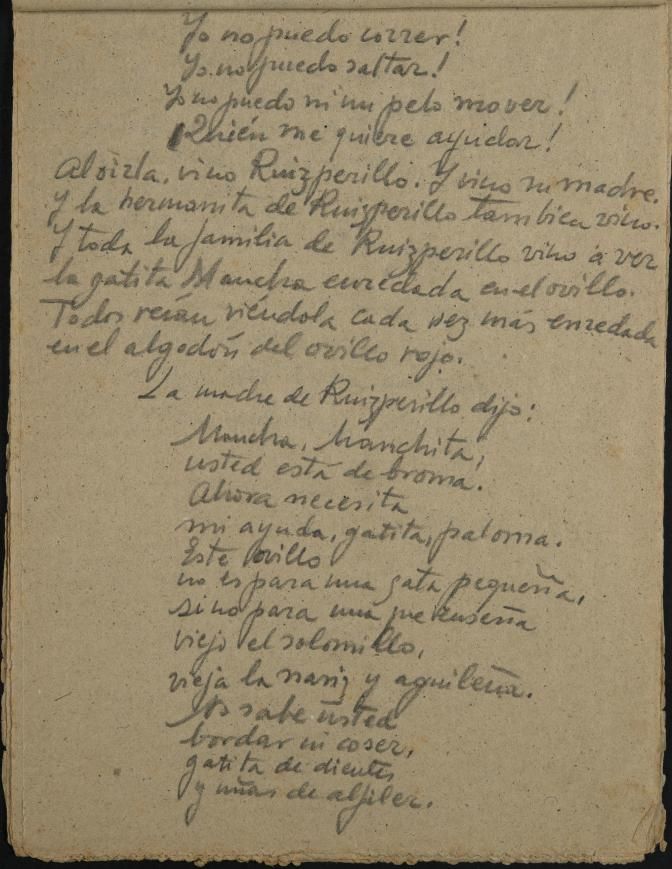 Yo no puedo correr!
Yo no puedo saltar!
Yo no puedo ni un pelo mover!
¡Quién me quiere ayudar!
Al oírla, vino Ruizperillo. Y vino su madre.
Y la hermanita de Ruizperillo tambien vino.
Y toda la familia de Ruizperillo vino a ver
la gatita Mancha enredada en el ovillo.
Todos reían viéndola cada vez más enredada
en el algodón del ovillo rojo.
La madre de Ruizperillo dijo:
Mancha, Manchita,
usted está de broma.
Ahora necesita
mi ayuda, gatita, paloma.
Este ovillo
no es para una gata pequeña,
sino para una que enseña
viejo el solomillo,
vieja la nariz y aguileña.
No sabe usted
bordar ni coser,
gatita de dientes
y uñas de alfiler.